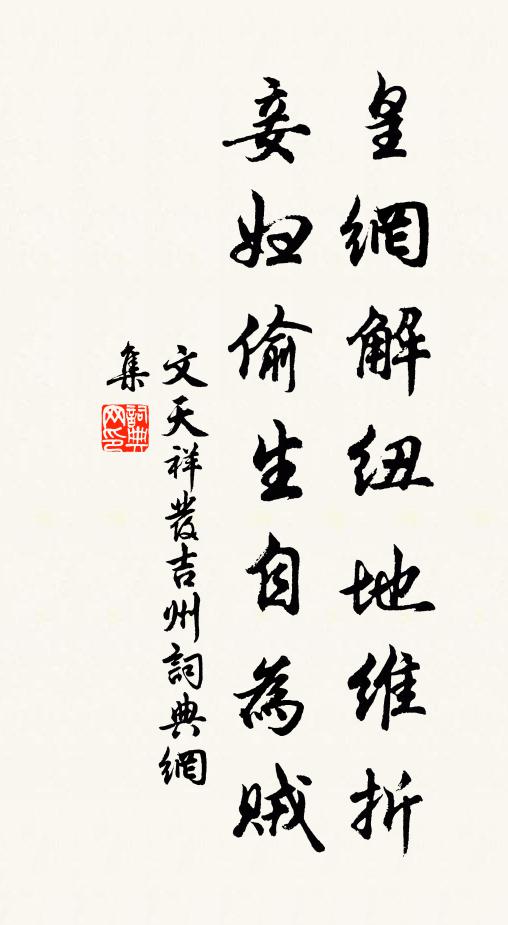 皇網解紐地維折
妾婦偷生自為賊
文天祥發吉州詞典網
集
詞典
网印